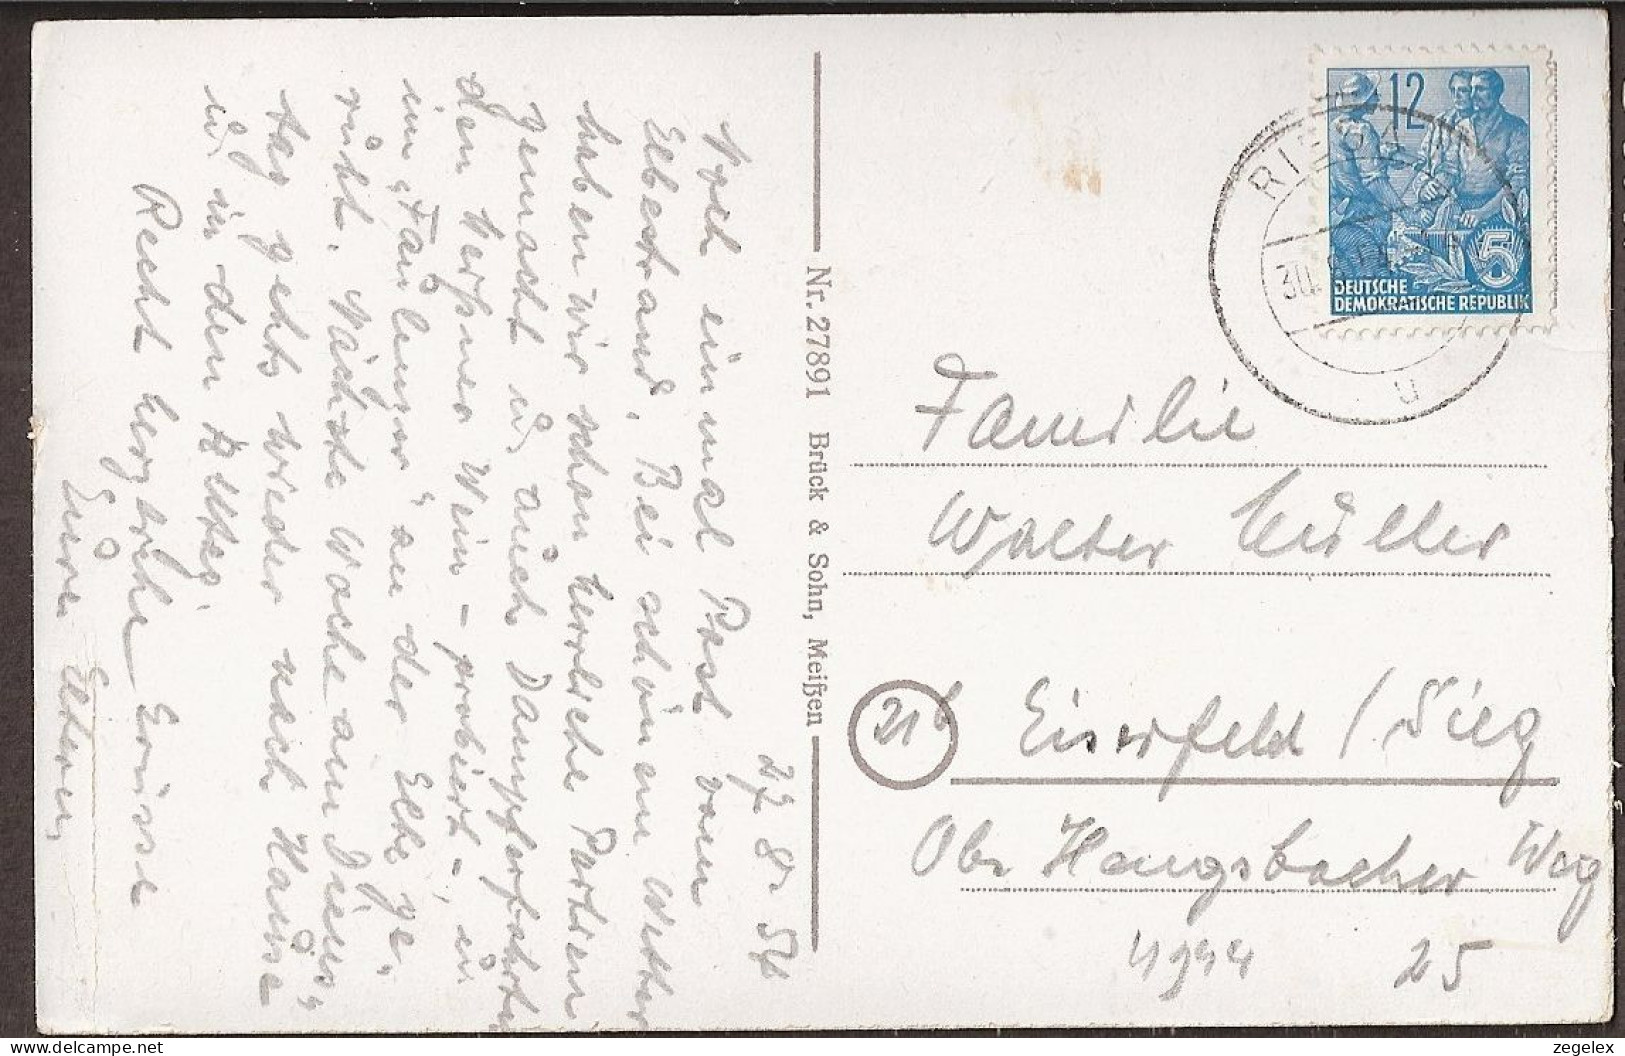 27. 8. 57
Noch einmal Post vom
Elbestrand. Bei schönem Wetter
haben wir schon herrliche Partien
gemacht u. auch Dampferfahrten
den Meißner Wein – probiert –, u.
im "Faulenzer" an der Elbe ge-
ruht. Nächste Woche am Diens-
tag gehts wieder nach Hause
u. in den
Recht herzliche Grüsse
Eure Eltern.
Nr. 27891 Brück & Sohn, Meißen
12
5
DEUTSCHE
DEMOKRATISCHE REPUBLIK
RIESA
30.
u
Familie
Walter Müller
21b
Eiserfeld / Sieg
Obr Hengsbacher Weg
25
zegelex